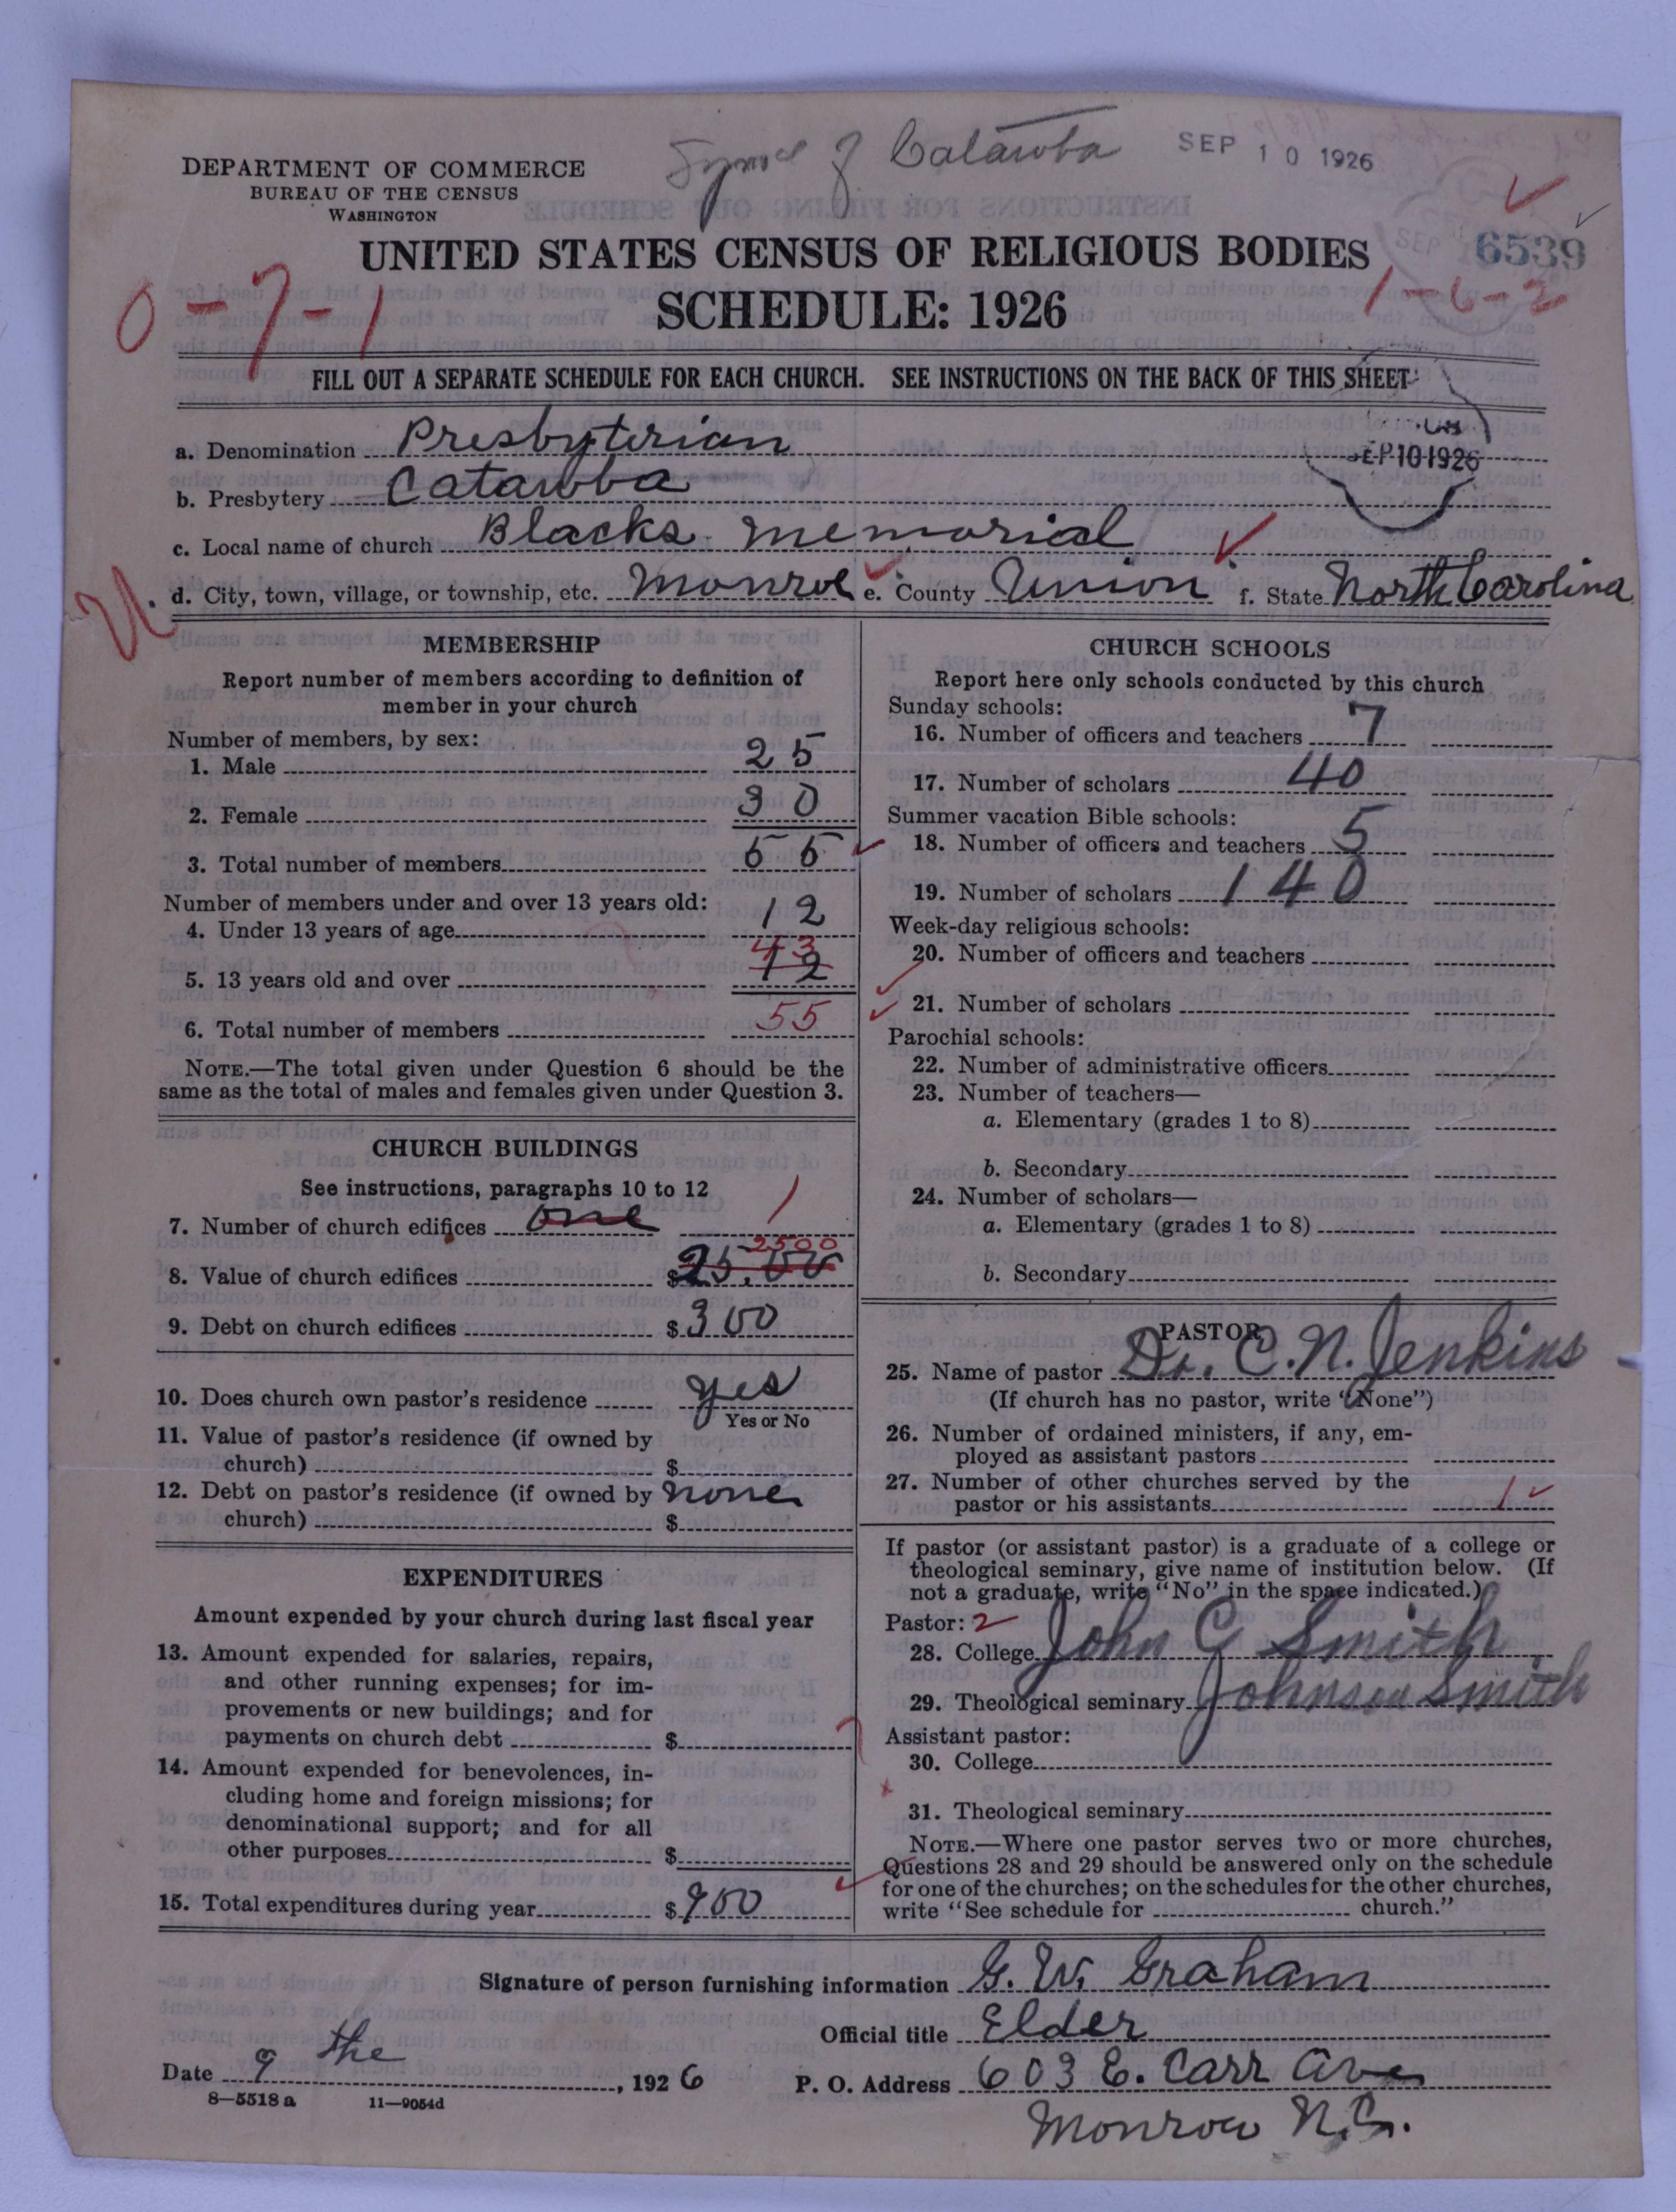 Synod of Catawba
SEP 10 1926
DEPARTMENT OF COMMERCE
BUREAU OF THE CENSUS
WASHINGTON
6539
UNITED STATES CENSUS OF RELIGIOUS BODIES
SCHEDULE: 1926
0-7-1
1-6-2
FILL OUT A SEPARATE SCHEDULE FOR EACH CHURCH. SEE INSTRUCTIONS ON THE BACK OF THIS SHEET
SEP 10 1926
a. Denomination Presbyterian
b. Presbytery Catawba
c. Local name of church Blacks Memorial
U. d. City, town, village, or township, etc. Monroe e. County Union f. State North Carolina
MEMBERSHIP
Report number of members according to definition of
member in your church
Number of members, by sex:
1. Male 25
2. Female 30
3. Total number of members 55
Number of members under and over 13 years old:
4. Under 13 years of age 12
5. 13 years old and over 12 43
6. Total number of members 55
NOTE.—The total given under Question 6 should be the
same as the total of males and females given under Question 3.
CHURCH BUILDINGS
See instructions, paragraphs 10 to 12
7. Number of church edifices one 1
8. Value of church edifices $25.00 2500
9. Debt on church edifices $300
10. Does church own pastor's residence yes
Yes or No
11. Value of pastor's residence (if owned by
church) $
12. Debt on pastor's residence (if owned by none
church) $
EXPENDITURES
Amount expended by your church during last fiscal year
13. Amount expended for salaries, repairs,
and other running expenses; for im-
provements or new buildings; and for
payments on church debt $
14. Amount expended for benevolences, in-
cluding home and foreign missions; for
denominational support; and for all
other purposes $
15. Total expenditures during year $900
CHURCH SCHOOLS
Report here only schools conducted by this church
Sunday schools:
16. Number of officers and teachers 7
17. Number of scholars 40
Summer vacation Bible schools:
18. Number of officers and teachers 5
19. Number of scholars 140
Week-day religious schools:
20. Number of officers and teachers
21. Number of scholars
Parochial schools:
22. Number of administrative officers
23. Number of teachers—
a. Elementary (grades 1 to 8)
b. Secondary
24. Number of scholars—
a. Elementary (grades 1 to 8)
b. Secondary
PASTOR
25. Name of pastor Dr. C. N. Jenkins
(If church has no pastor, write "None")
26. Number of ordained ministers, if any, em-
ployed as assistant pastors
27. Number of other churches served by the
pastor or his assistants 1
If pastor (or assistant pastor) is a graduate of a college or
theological seminary, give name of institution below. (If
not a graduate, write "No" in the space indicated.)
Pastor: 2
28. College John C Smith
29. Theological seminary Johnson Smith
Assistant pastor:
30. College
31. Theological seminary
NOTE.—Where one pastor serves two or more churches,
Questions 28 and 29 should be answered only on the schedule
for one of the churches; on the schedules for the other churches,
write "See schedule for church."
Signature of person furnishing information G. W. Graham
Official title Elder
Date 9 the, 1926
P. O. Address 603 E. Carr Ave
Monroe N.C.
8—5518 a 11—9054d